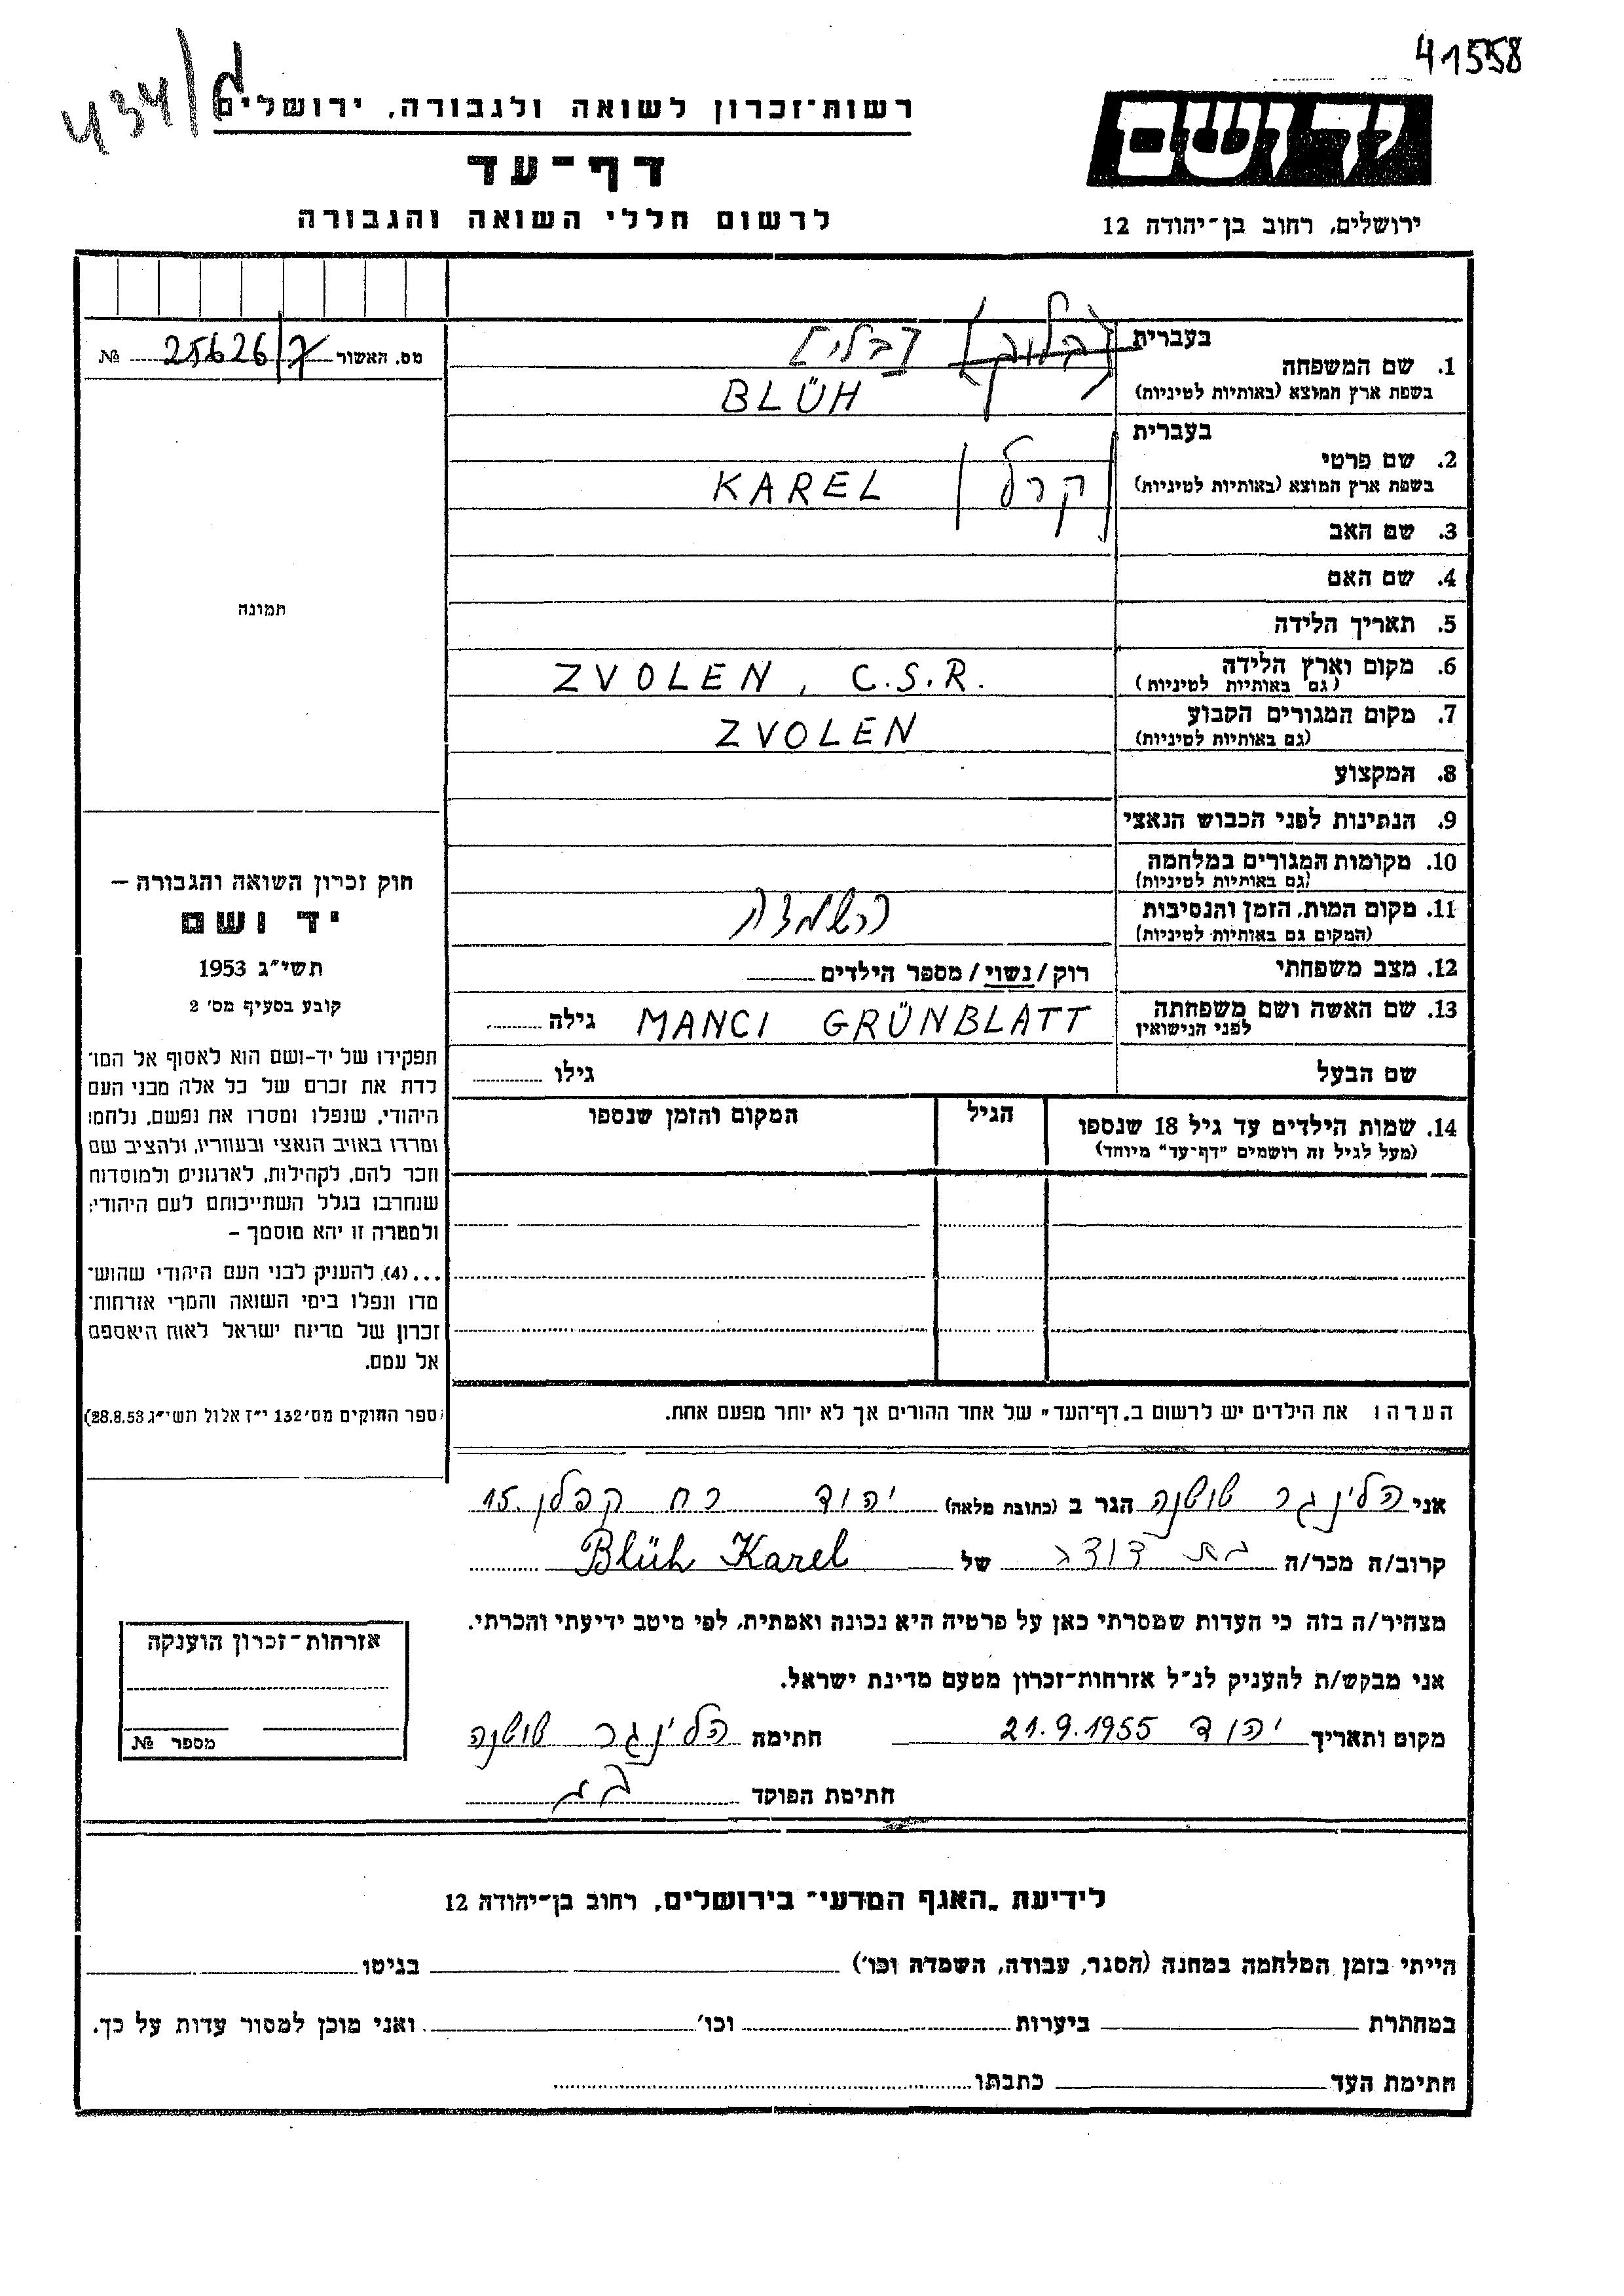 41558
434/ל
יד ושם
רשות־זכרון לשואה ולגבורה, ירושלים
דף־עד
ירושלים, רחוב בן־יהודה 12
לרשום חללי השואה והגבורה
מס. האשור 25626/7 №
בעברית
[בלי]
1. שם המשפחה
בשפת ארץ המוצא (באותיות לטיניות) BLÜH
בעברית
קרל
2. שם פרטי
בשפת ארץ המוצא (באותיות לטיניות) KAREL
3. שם האב
4. שם האם
תמונה
5. תאריך הלידה
6. מקום וארץ הלידה ZVOLEN, C.S.R.
(גם באותיות לטיניות)
7. מקום המגורים הקבוע ZVOLEN
(גם באותיות לטיניות)
8. המקצוע
9. הנתינות לפני הכבוש הנאצי
10. מקומות המגורים במלחמה
(גם באותיות לטיניות)
11. מקום המות, הזמן והנסיבות השמדה
(המקום גם באותיות לטיניות)
12. מצב משפחתי רוק/נשוי/מספר הילדים
13. שם האשה ושם משפחתה MANCI GRÜNBLATT גילה
לפני הנישואין
שם הבעל גילו
14. שמות הילדים עד גיל 18 שנספו הגיל המקום והזמן שנספו
(מעל לגיל זה רושמים "דף־עד" מיוחד)
חוק זכרון השואה והגבורה –
יד ושם
תשי״ג 1953
קובע בסעיף מס׳ 2
תפקידו של יד-ושם הוא לאסוף אל המו־
לדת את זכרם של כל אלה מבני העם
היהודי, שנפלו ומסרו את נפשם, נלחמו
ומרדו באויב הנאצי ובעוזריו, ולהציב שם
וזכר להם, לקהילות, לארגונים ולמוסדות
שנחרבו בגלל השתייכותם לעם היהודי;
ולמטרה זו יהא מוסמך –
...(4) להעניק לבני העם היהודי שהוש־
מדו ונפלו בימי השואה והמרי אזרחות־
זכרון של מדינת ישראל לאות היאספם
אל עמם.
(ספר החוקים מס׳ 132 י״ז אלול תשי״ג 28.8.53)
הערה: את הילדים יש לרשום ב„דף־העד" של אחד ההורים אך לא יותר מפעם אחת.
אני הלינגר שושנה הגר ב (כתובת מלאה) יהוד רח קפלן 15.
קרוב/ה מכר/ה בת דודה של Blüh Karel
מצהיר/ה בזה כי העדות שמסרתי כאן על פרטיה היא נכונה ואמתית, לפי מיטב ידיעתי והכרתי.
אני מבקש/ת להעניק לנ״ל אזרחות־זכרון מטעם מדינת ישראל.
מקום ותאריך יהוד 21.9.1955 חתימה הלינגר שושנה
חתימת הפוקד
אזרחות־זכרון הוענקה
מספר №
לידיעת „האגף המדעי" בירושלים, רחוב בן־יהודה 12
הייתי בזמן המלחמה במחנה (הסגר, עבודה, השמדה וכו׳) בגיטו
במחתרת ביערות וכו׳ ואני מוכן למסור עדות על כך.
חתימת העד כתבתו